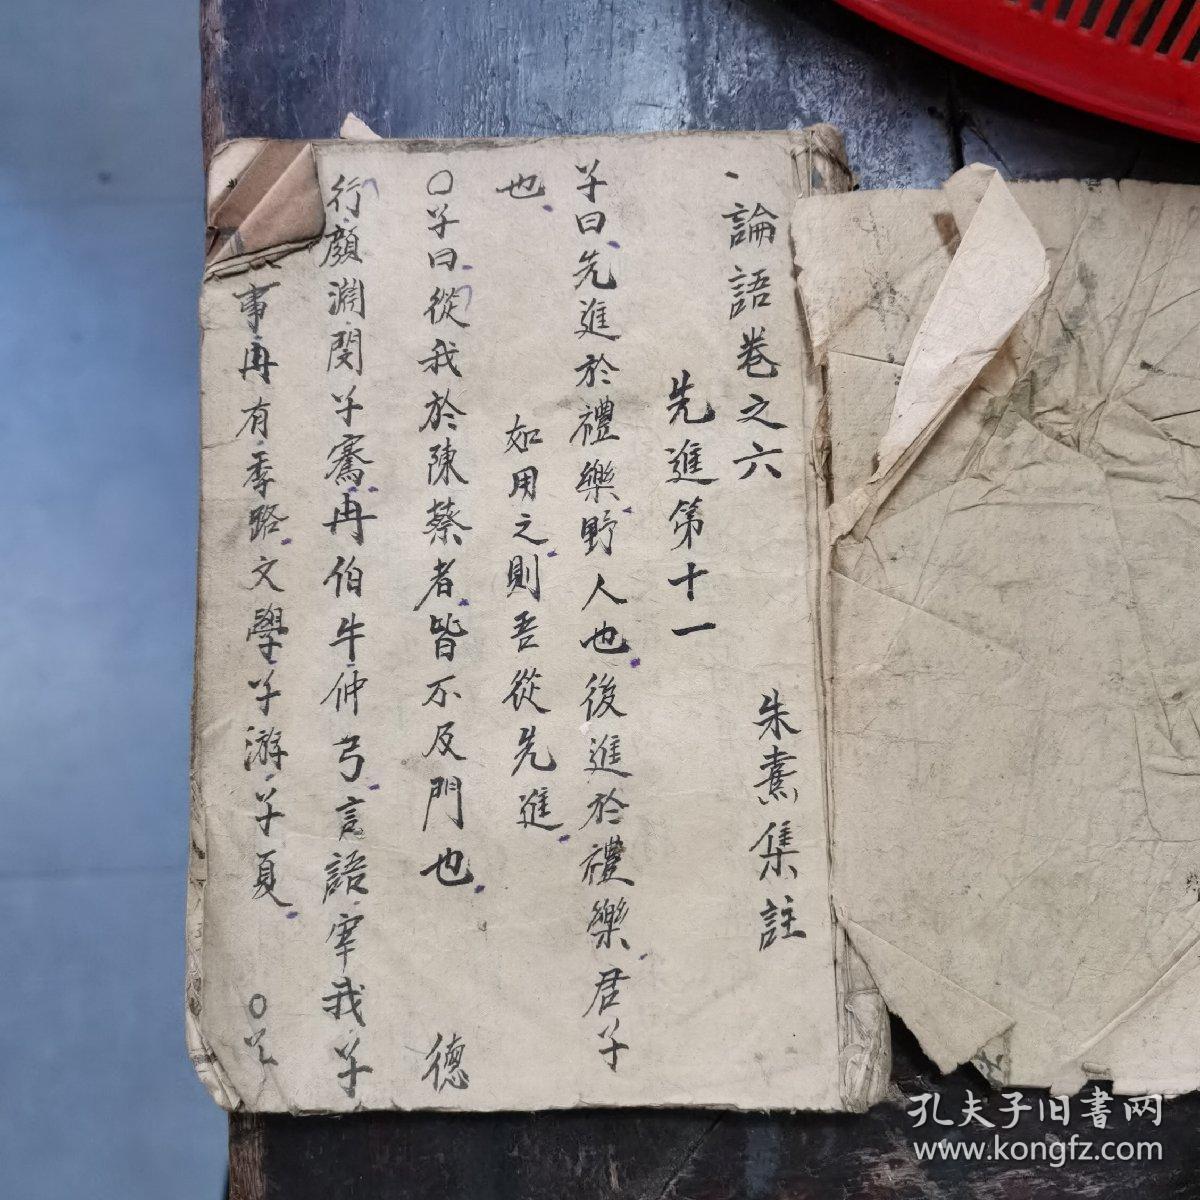 論語卷之六 朱熹集註
先進第十一
子曰先進於禮樂野人也後進於禮樂君子
也 如用之則吾從先進
〇子曰從我於陳蔡者皆不及門也 德
行顏淵閔子騫冉伯牛仲弓言語宰我子
事冉有季路文學子游子夏 〇子
孔夫子旧書网
www.kongfz.com